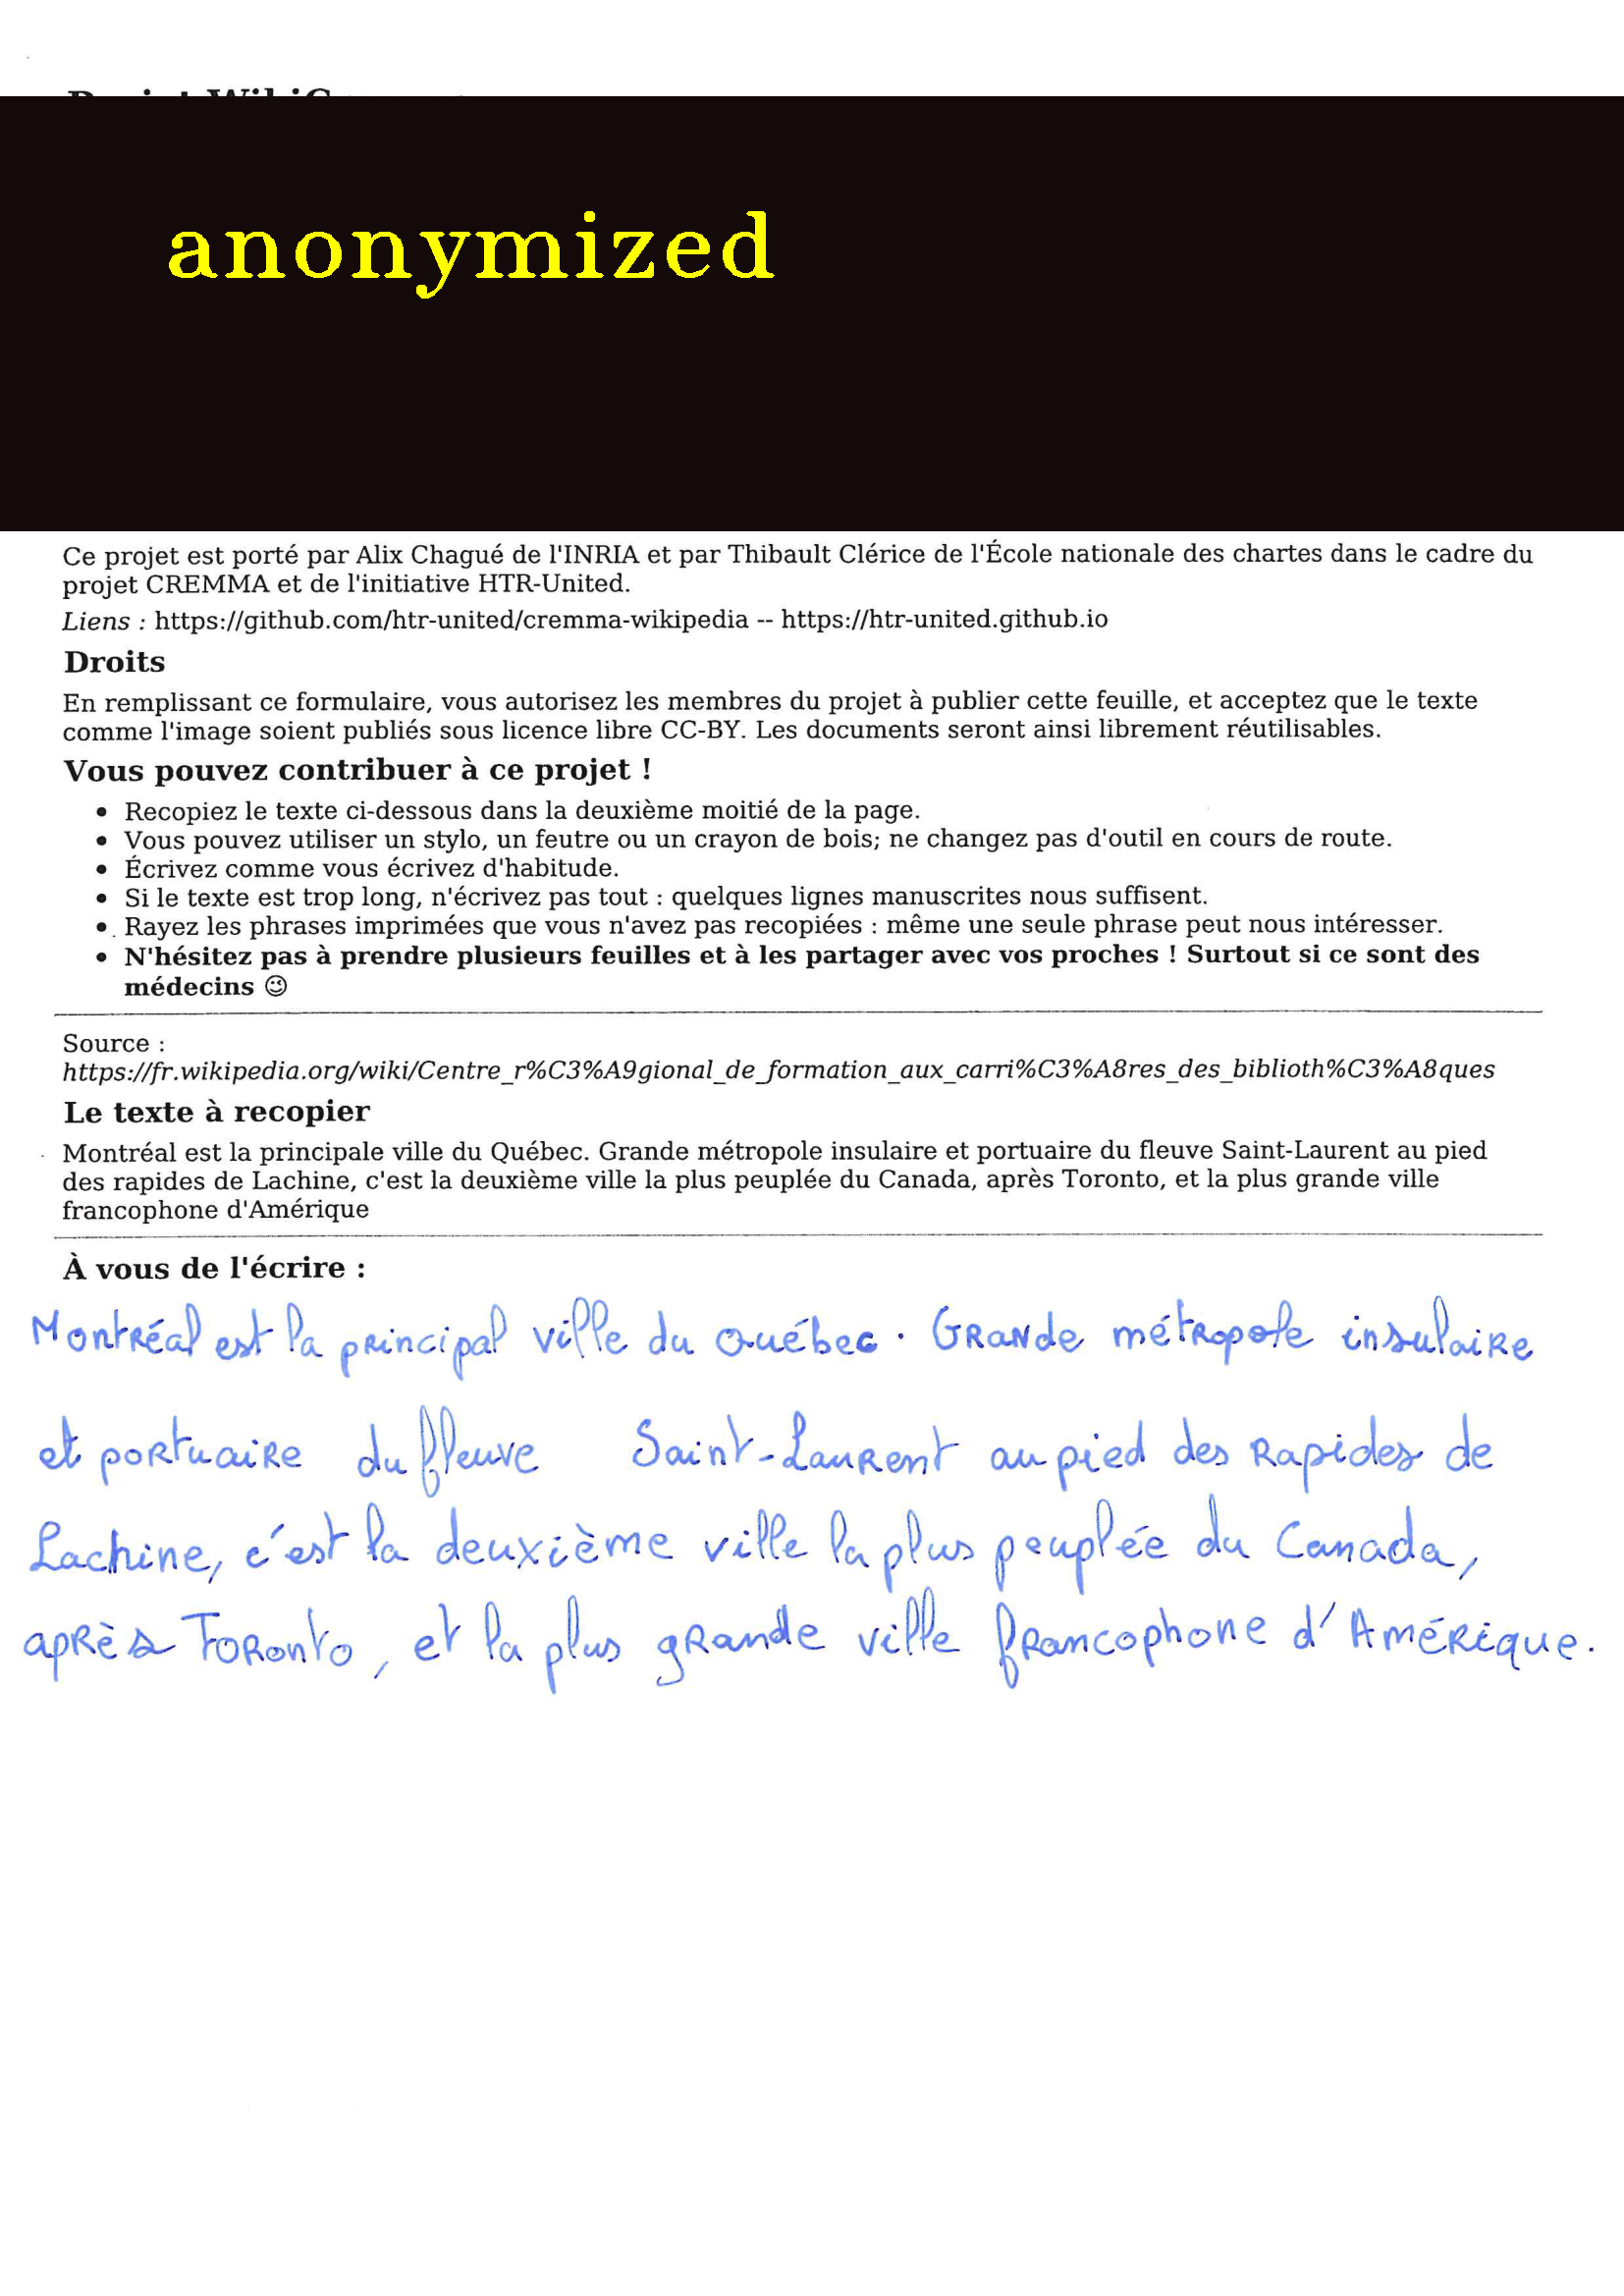 anonymized
Ce projet est porté par Alix Chagué de l'INRIA et par Thibault Clérice de l'École nationale des chartes dans le cadre du
projet CREMMA et de l'initiative HTR-United.
Liens : https://github.com/htr-united/cremma-wikipedia -- https://htr-united.github.io
Droits
En remplissant ce formulaire, vous autorisez les membres du projet à publier cette feuille, et acceptez que le texte
comme l'image soient publiés sous licence libre CC-BY. Les documents seront ainsi librement réutilisables.
Vous pouvez contribuer à ce projet !
• Recopiez le texte ci-dessous dans la deuxième moitié de la page.
• Vous pouvez utiliser un stylo, un feutre ou un crayon de bois; ne changez pas d'outil en cours de route.
• Écrivez comme vous écrivez d'habitude.
• Si le texte est trop long, n'écrivez pas tout : quelques lignes manuscrites nous suffisent.
• Rayez les phrases imprimées que vous n'avez pas recopiées : même une seule phrase peut nous intéresser.
• N'hésitez pas à prendre plusieurs feuilles et à les partager avec vos proches ! Surtout si ce sont des
médecins 😉
Source :
https://fr.wikipedia.org/wiki/Centre_r%C3%A9gional_de_formation_aux_carri%C3%A8res_des_biblioth%C3%A8ques
Le texte à recopier
Montréal est la principale ville du Québec. Grande métropole insulaire et portuaire du fleuve Saint-Laurent au pied
des rapides de Lachine, c'est la deuxième ville la plus peuplée du Canada, après Toronto, et la plus grande ville
francophone d'Amérique
À vous de l'écrire :
Montréal est la principal ville du Québec. Grande métropole insulaire
et portuaire du fleuve Saint-Laurent au pied des rapides de
Lachine, c'est la deuxième ville la plus peuplée du Canada,
après Toronto, et la plus grande ville francophone d'Amérique.